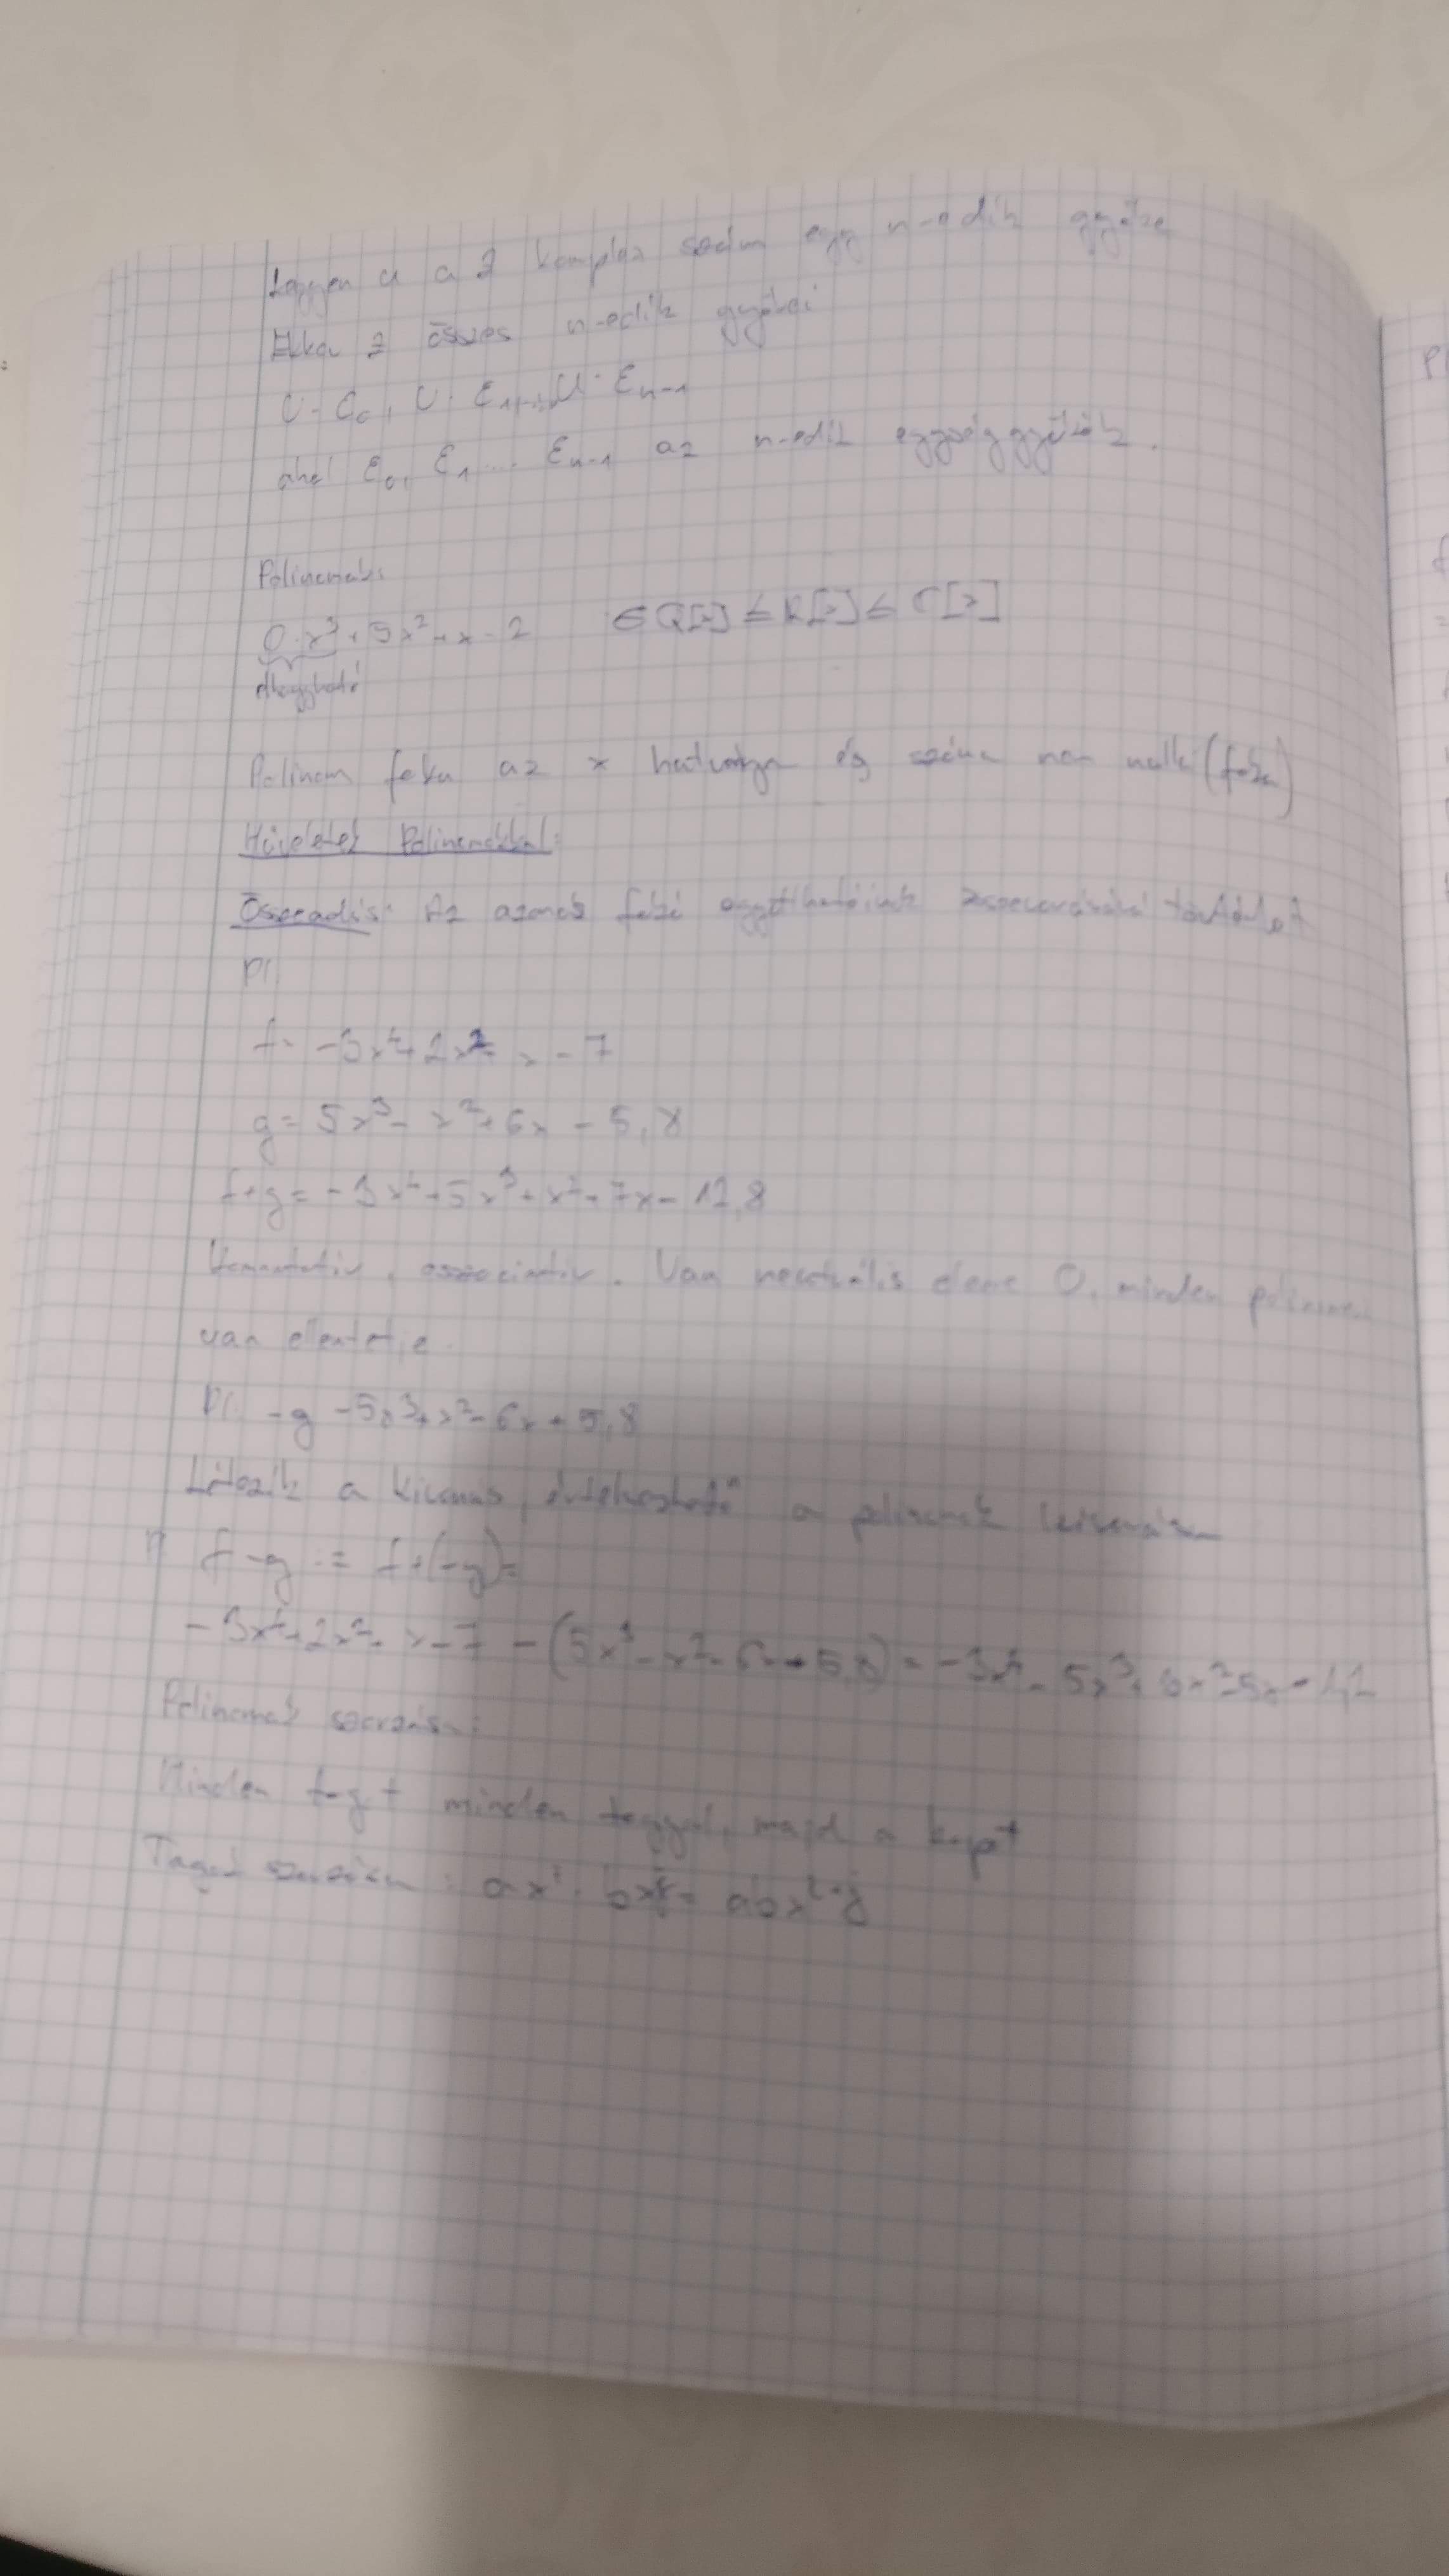 Legyen u a z komplex szám egy n-edik gyöke
Ekkor z összes n-edik gyökei
U · ε₀, U · ε₁, ... U · εₙ₋₁
ahol ε₀, ε₁ ... εₙ₋₁ az n-edik egységgyökök.
Polinomok:
0·x³ + 5x² + x - 2 ∈ Q[x] ≤ R[x] ≤ C[x]
elhagyható
Polinom foka az x hatványa nem nulla (foka)
Műveletek Polinomokkal:
Összeadás: Az azonos fokú együtthatóinak összeadásával történhet
Pl.
f = -3x⁴ + 2x² + x - 7
g = 5x³ - x² + 6x - 5,8
f+g = -3x⁴ + 5x³ + x² + 7x - 12,8
Kommutatív, asszociatív. Van neutrális eleme 0, minden
van ellentetje.
Pl. -g -5x³ + x² - 6x + 5,8
a kivonás, értelmezhető a polinomok
f - g := f + (-g) =
-3x⁴ + 2x² + x - 7 - (5x³ - x² + 6x - 5,8) = -3x⁴ - 5x³ + 3x² - 5x - 1,2
Polinomok szorzása:
Minden tagot minden taggal, majd a kapot
Tagok szorzása: axⁱ · bxʲ = abxⁱ⁺ʲ